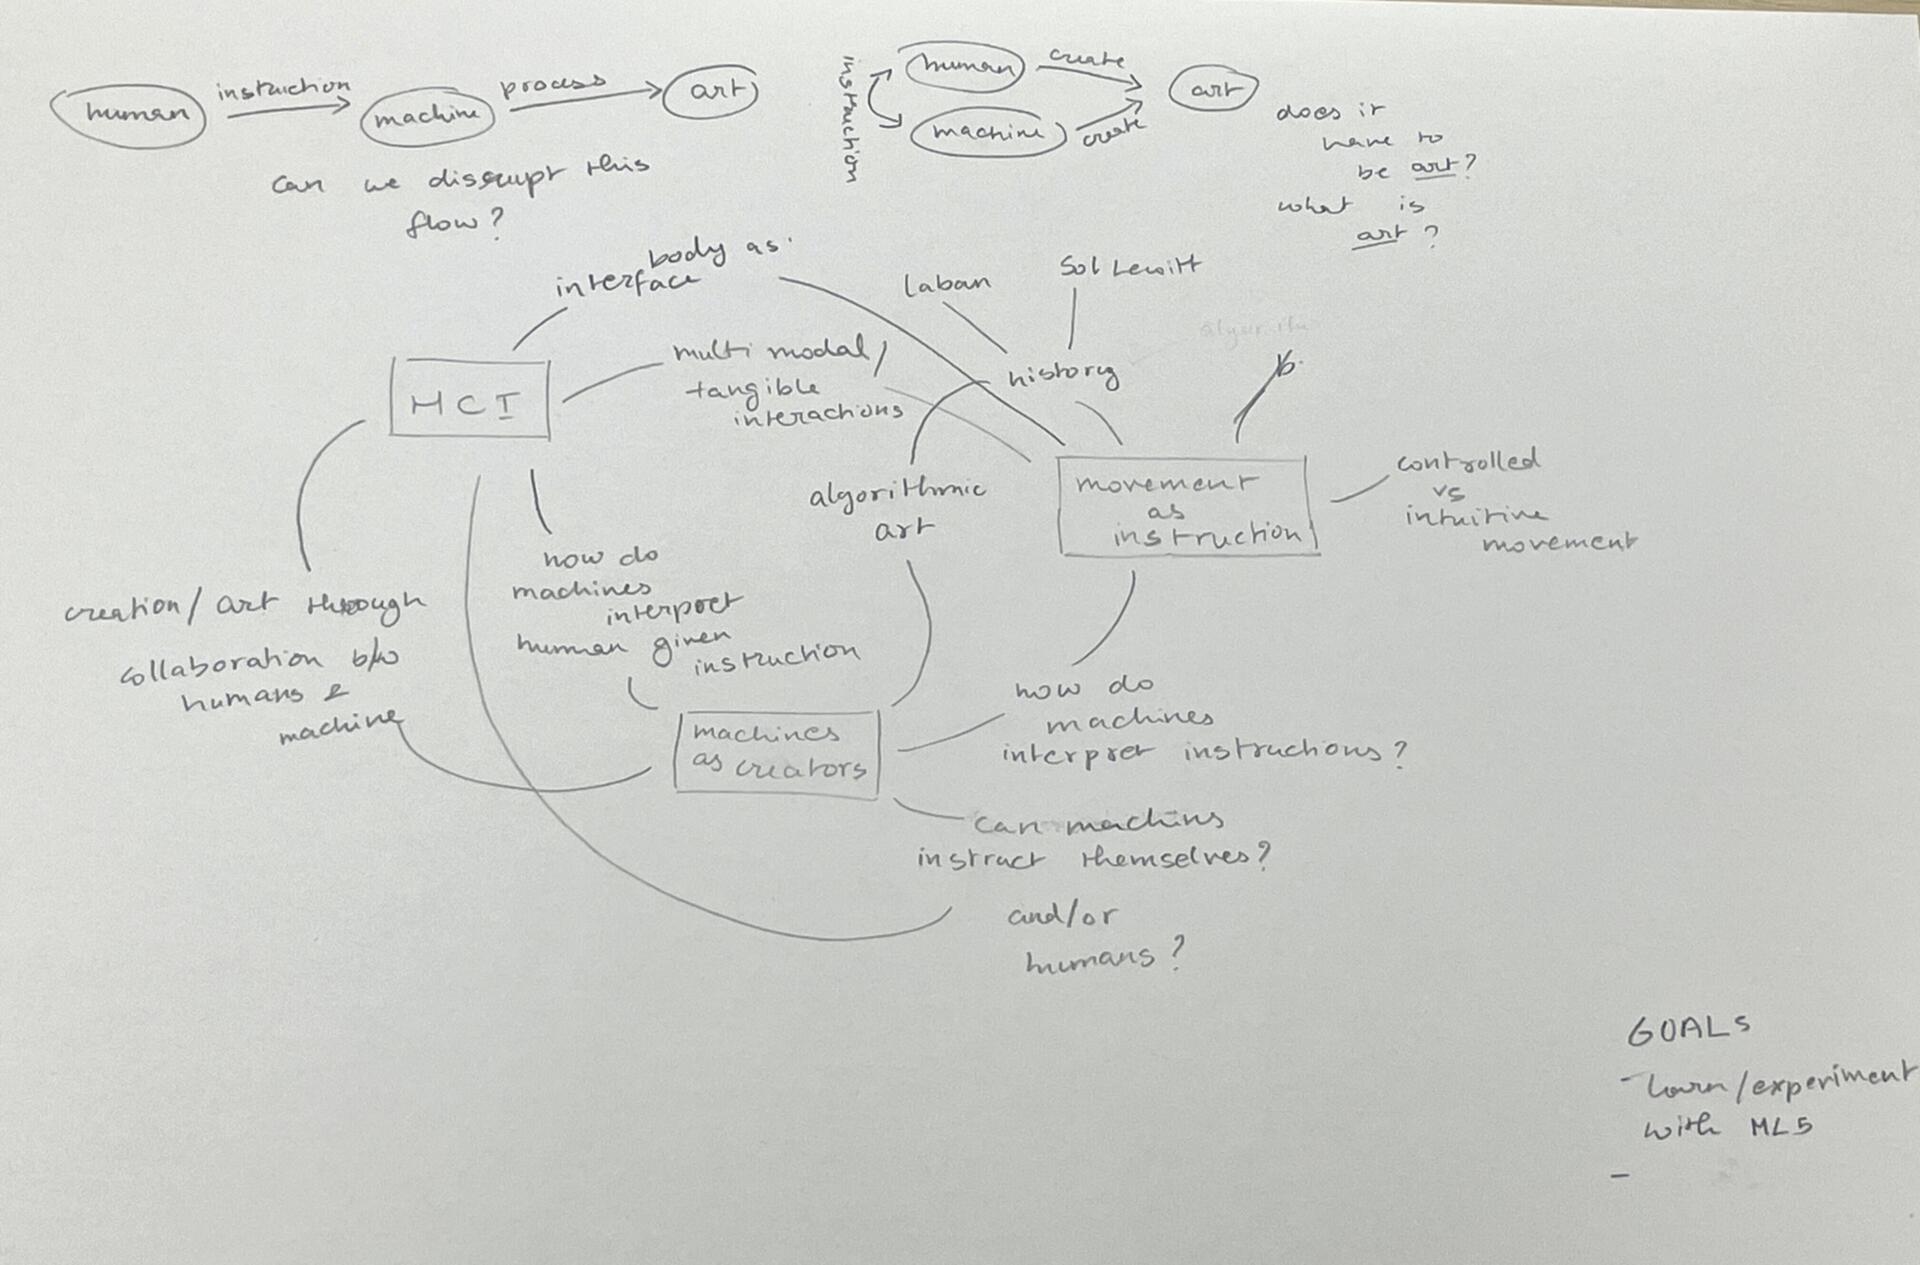 human
instruction
machine
process
art
can we disrupt this
flow?
instruction
human
create
machine
create
art
does it
have to
be art?
what is
art?
body as
interface
multi modal /
tangible
interactions
HCI
laban
Sol Lewitt
history
algorithmic
art
movement
as
instruction
controlled
vs
intuitive
movement
creation / art through
collaboration b/w
humans &
machine
how do
machines
interpret
human given
instruction
machines
as creators
how do
machines
interpret instructions?
can machins
instruct themselves?
and/or
humans?
GOALS
- learn / experiment
with ML5
-